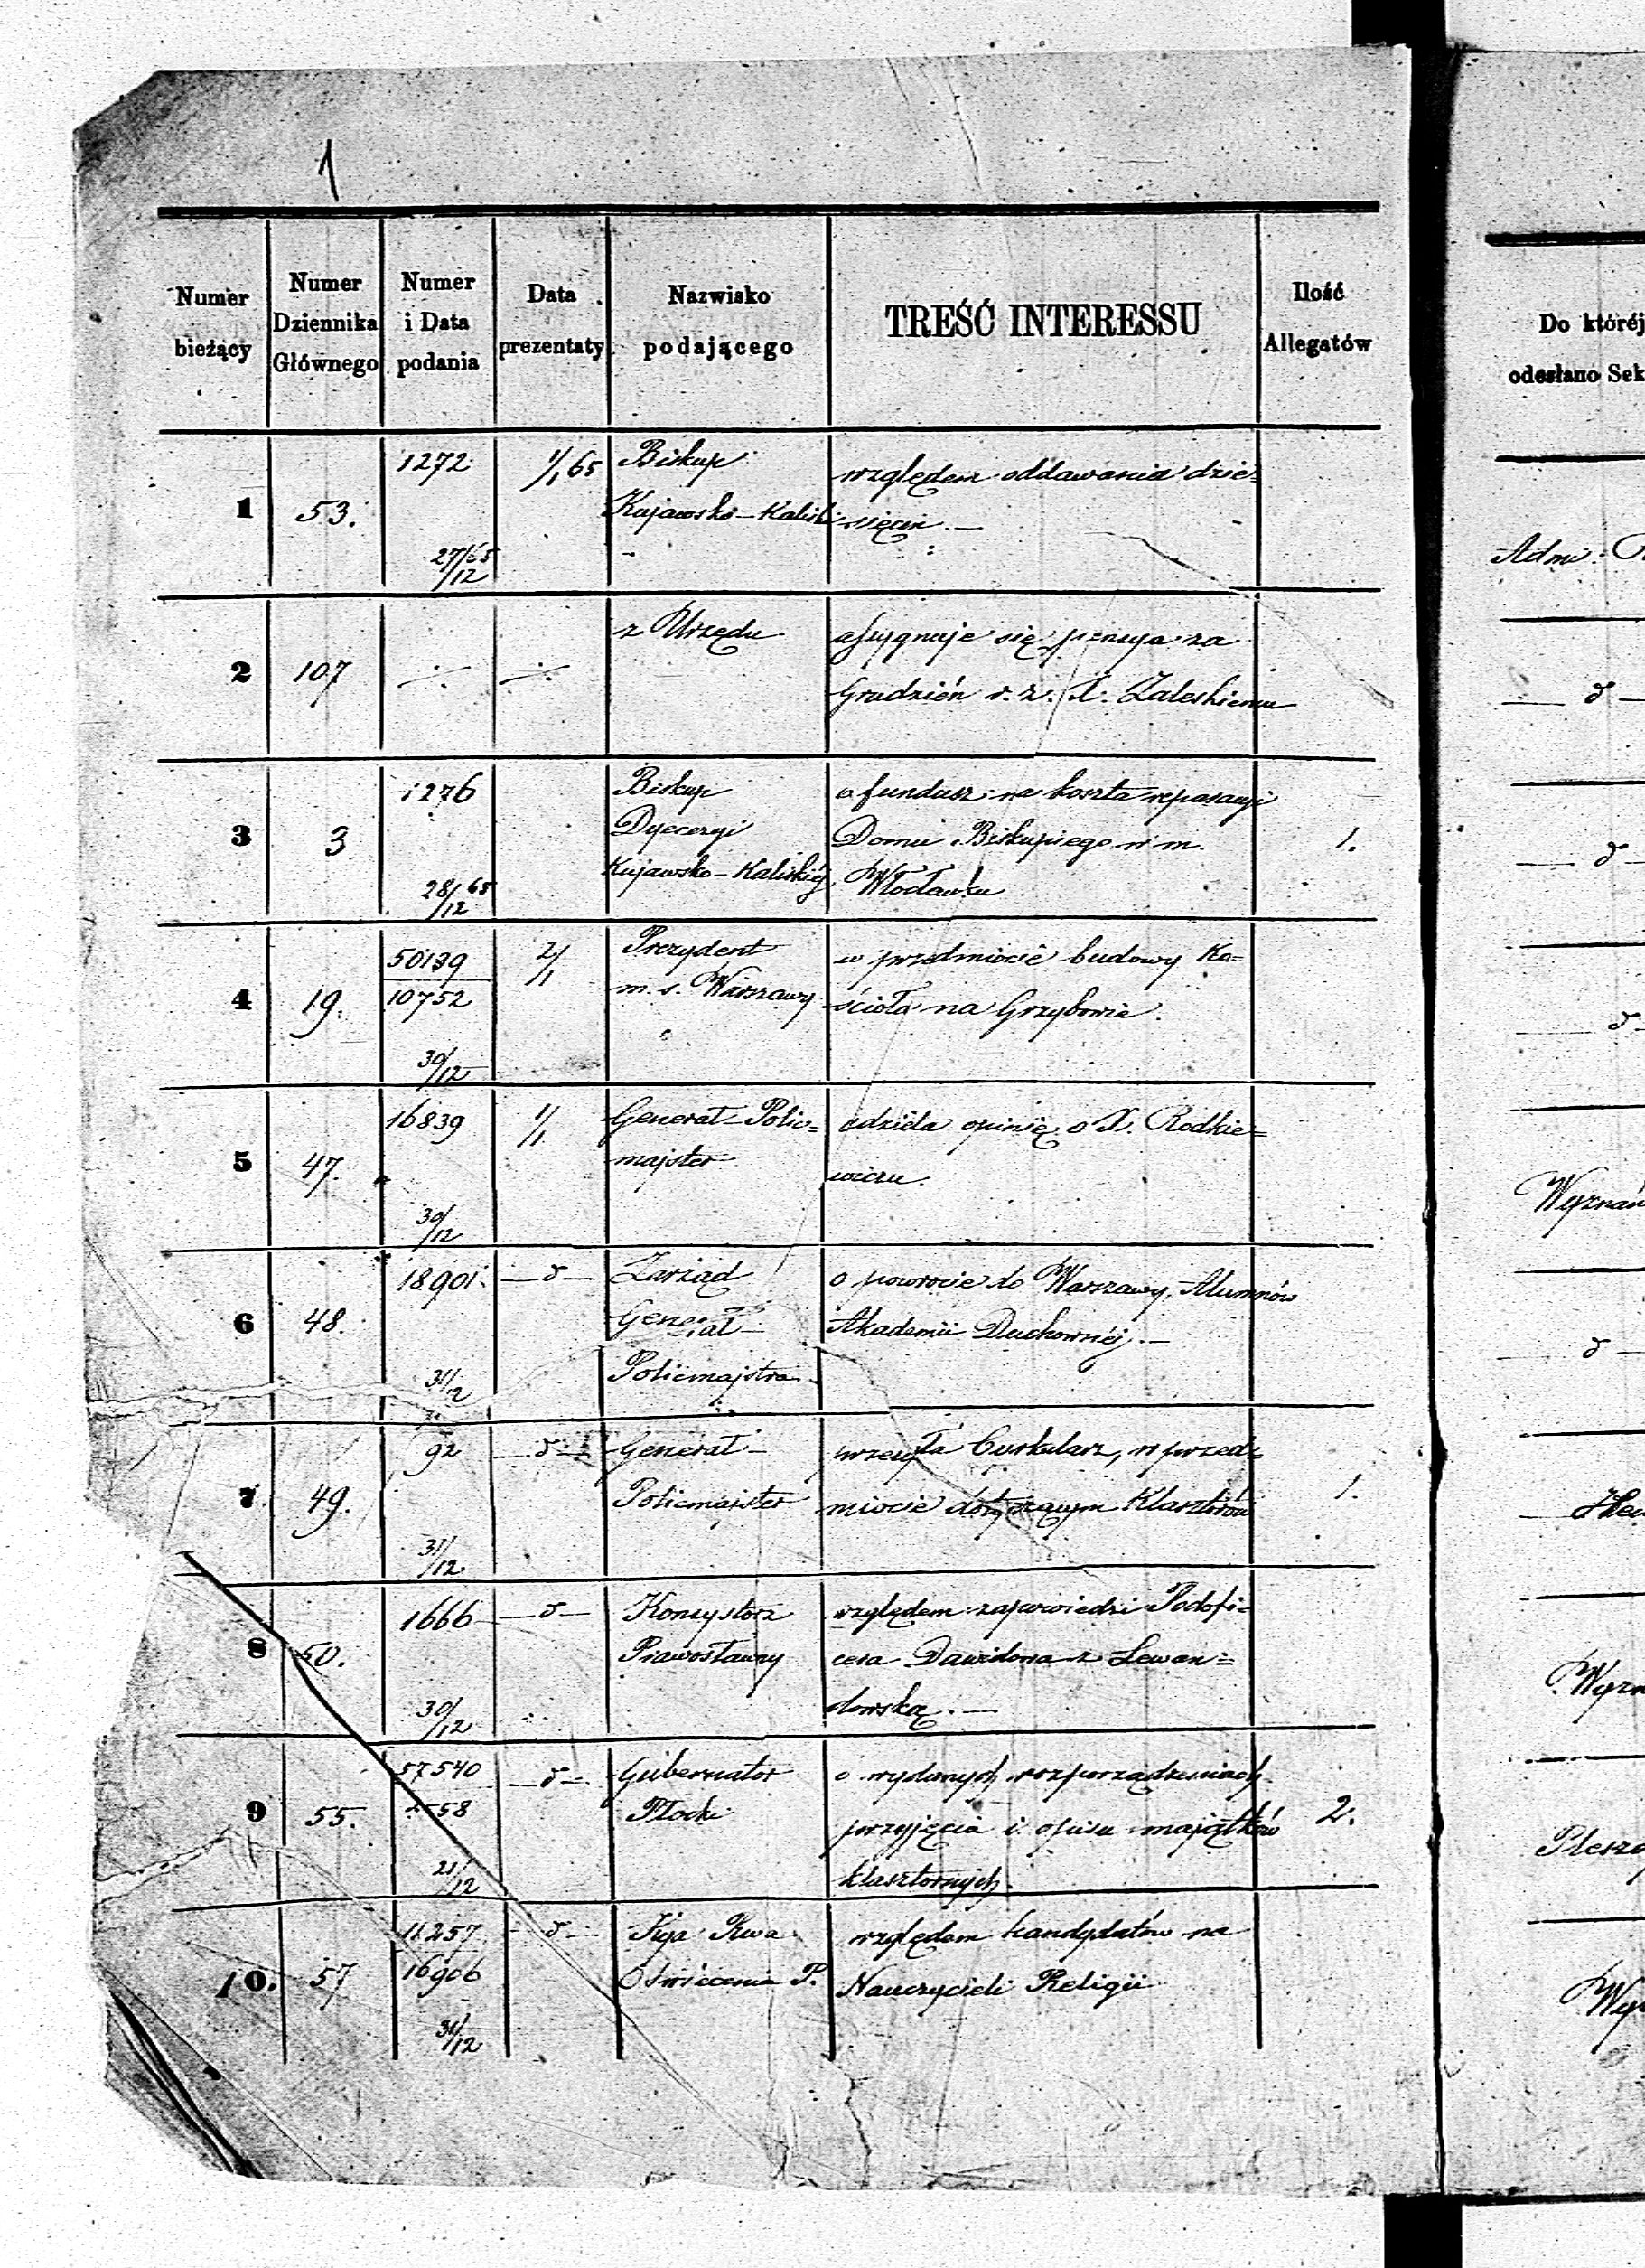 1
Numer bieżący
Numer Dziennika Głównego
Numer i Data podania
Data prezentaty
Nazwisko podającego
TREŚĆ INTERESSU
Ilość Allegatów
Do któréj
odesłano Sek
1 53. 1272 27/12 65 1/1 65
Biskup
Kujawsko-Kalisk
względem oddawania dzie=
sięcin. —
Adm:
2 107 ÷ ÷
z Urzędu
assygnuje się pensya za
Grudzień r. z. X. Zaleskiemu
— d —
3 3 1276 28/12 65
Biskup
Dyecezyi
Kujawsko-Kaliskiéj
o fundusz na koszta reparacyi
Domu Biskupiego w m.
Włocławku
1.
— d —
4 19. 50139 10752 30/12 2/1
Prezydent
m. s. Warszawy
w przedmiocie budowy Ko=
ścioła na Grzybowie.
— d —
5 47. 16839 30/12 1/1
Generał-Polic=
majster
udziela opinię o X. Rodkie=
wiczu.
Wyznań
6 48. 18901. 31/12 — d —
Zarząd
Generał-
Policmajstra
o powrocie do Warszawy, Alumnów
Akademii Duchownéj. —
— d —
7 49. 92 31/12 — d —
Generał-
Policmajster
przesyła Cyrkularz, w przed=
miocie dotyczącym Klasztorów
1.
8 50. 1666 30/12 — d —
Konsystorz
Prawosławny
względem zapowiedzi Podofi=
cera Dawidowa z Lewan=
dowską. —
Wyzn
9 55. 57540 21/12 — d —
Gubernator
Płocki
o wydanych rozporządzeniach
przyjęcia i opisu majątków
klasztornych
2.
10. 57 11257 16906 31/12 — d —
Kja Rwa
Oświecenia P.
względem kandydatów na
Nauczycieli Religii
Wyz